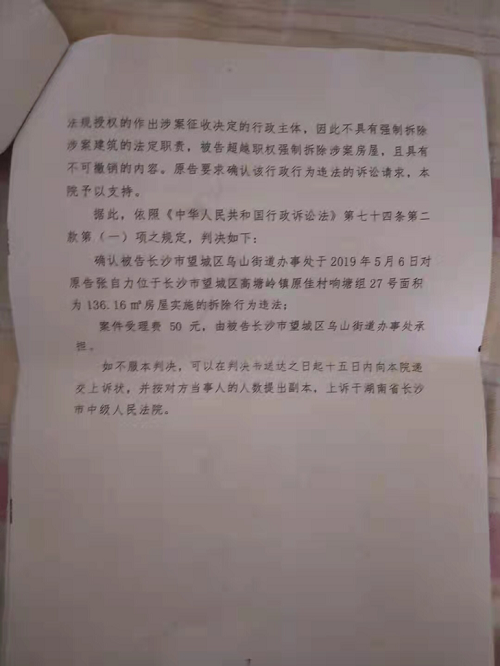 法规授权的作出涉案征收决定的行政主体，因此不具有强制拆除
涉案建筑的法定职责，被告超越职权强制拆除涉案房屋，且具有
不可撤销的内容。原告要求确认该行政行为违法的诉讼请求，本
院予以支持。
据此，依照《中华人民共和国行政诉讼法》第七十四条第二
款第（一）项之规定，判决如下：
确认被告长沙市望城区乌山街道办事处于2019年5月6日对
原告张自力位于长沙市望城区高塘岭镇原佳村响塘组27号面积
为136.16㎡房屋实施的拆除行为违法；
案件受理费 50 元，由被告长沙市望城区乌山街道办事处承
担。
如不服本判决，可以在判决书送达之日起十五日内向本院递
交上诉状，并按对方当事人的人数提出副本，上诉于湖南省长沙
市中级人民法院。
7